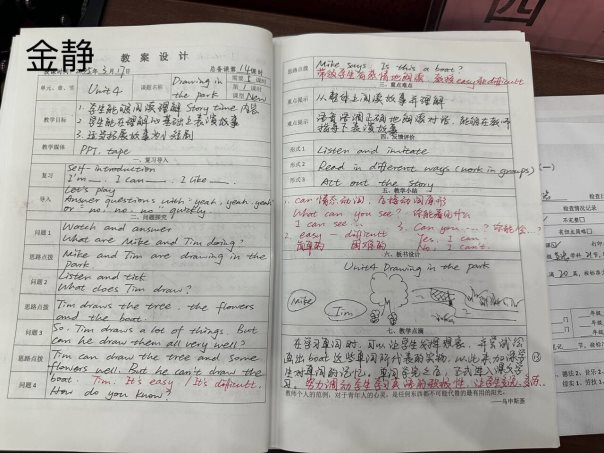 金静
教案设计
总备课第14课时
2025年3月17日
需要5课时
第1课时
课型 New
单元、章、节
Unit4
课题名称
Drawing in the park
教学目标
1. 学生能够阅读理解 Story time 内容
2. 学生能在理解的基础上表演故事
3. 运用拓展故事为小短剧
教学媒体
PPT, tape
一、复习导入
复习
Self-introduction
I'm __. I can __. I like __.
导入
Let's play
Answer questions with "yeah, yeah, yeah"
or "no, no, no" quickly.
二、问题探究
问题1
Watch and answer
What are Mike and Tim doing?
思路点拨
Mike and Tim are drawing in the
park.
问题2
Listen and tick
What does Tim draw?
思路点拨
Tim draws the tree, the flowers
and the boat.
问题3
So, Tim draws a lot of things. But
can he draw them all very well?
思路点拨
Tim can draw the tree and some
flowers well. But he can't draw the
boat. Tim: It's easy / It's difficult.
问题4
How do you know?
思路点拨
Mike says: Is this a boat?
带领学生有感情地朗读, 教授 easy和difficult
三、重点难点
重点提示
从整体上阅读故事并理解
难点提示
语音语调正确地朗读对话, 能够在教师
指导下表演故事
四、反馈评价
形式1
Listen and imitate
形式2
Read in different ways (work in groups)
形式3
Act out the story
五、教学小结
1. can 情态动词, 后接动词原形
What can you see? 你能看到什么
I can see...
3. Can you...? 你能...?
2. easy — difficult
Yes, I can.
简单的 困难的
No, I can't.
六、板书设计
Unit4 Drawing in the park
Mike
Tim
七、教学点滴
在学习单词时, 可以让学生先猜猜看, 并尝试
画出boat这些单词所代表的实物, 以此来加深学
生对单词的记忆。单词学完之后, 正式进入课文学
习。努力调动学生学习英语的积极性, 让学生
教师个人的范例，对于青年人的心灵，是任何东西都不可能代替的最有用的阳光。
——乌申斯基
检查情况记录
不完整口